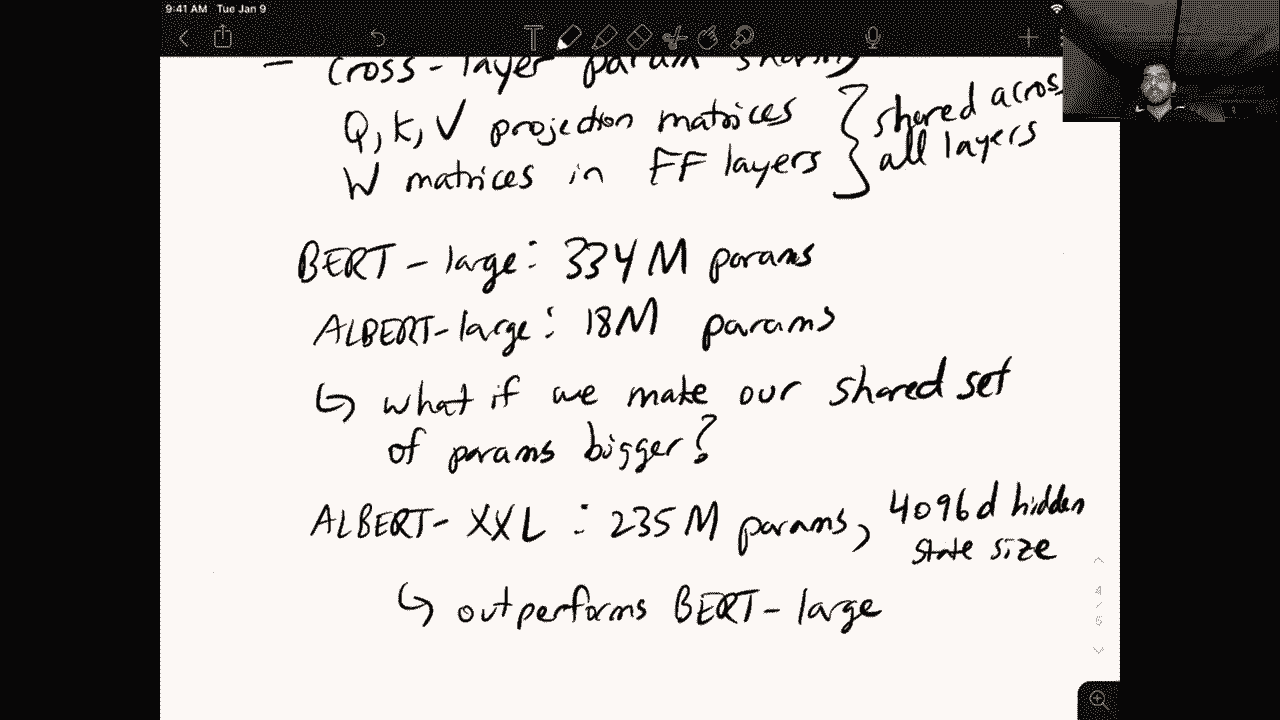 9:41 AM Tue Jan 9
- Cross-layer param sharing
Q, K, V projection matrices } shared across
W matrices in FF layers all layers
BERT-large: 334M params
ALBERT-large: 18M params
↳ what if we make our shared set
of params bigger?
ALBERT-XXL: 235M params, 4096d hidden
state size
↳ outperforms BERT-large
4
/
6